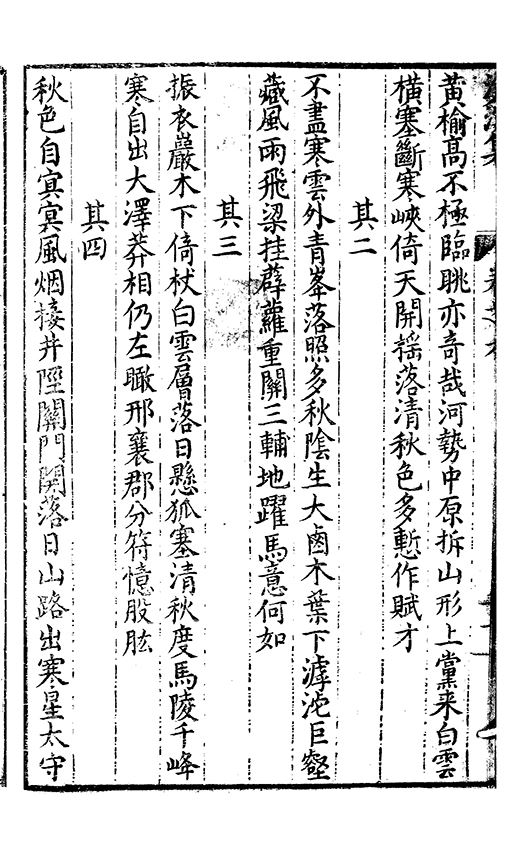 黃榆高不極臨眺亦奇哉河勢中原拆山形上黨来白雲
橫塞斷寒峽倚天開揺落清秋色多慙作賦才
其二
不盡寒雲外青峯落照多秋陰生大鹵木葉下滹沱巨壑
藏風雨飛梁挂薜蘿重關三輔地躍馬意何如
其三
振衣巖木下倚杖白雲層落日懸狐塞清秋度馬陵千峰
寒自出大澤莽相仍左瞰邢襄郡分符憶股肱
其四
秋色自㝠㝠風烟接井陘關門開落日山路出寒星太守